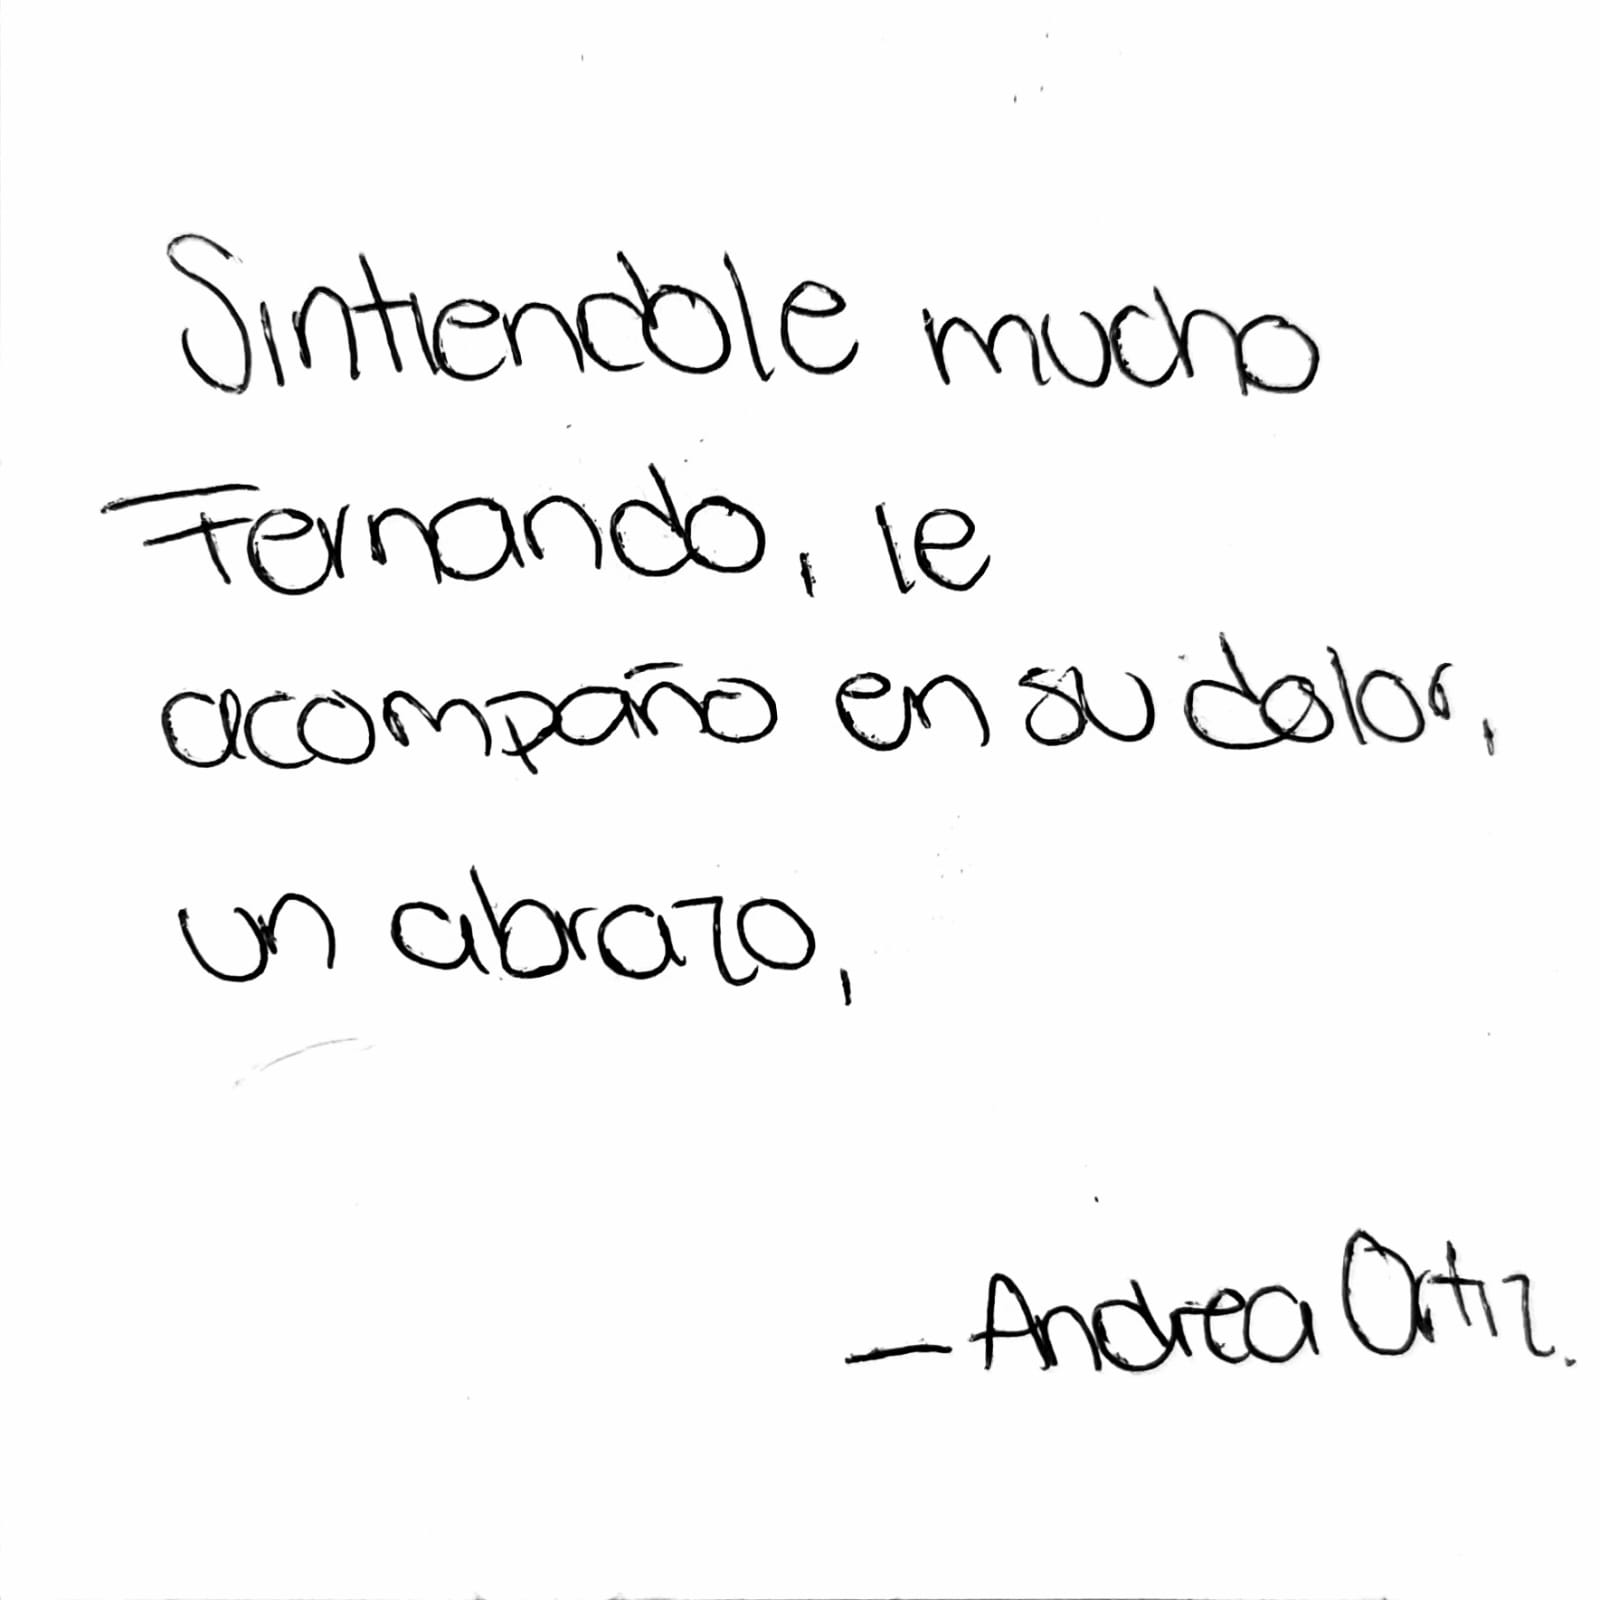 Sintiendole mucho
Fernando, le
acompaño en su dolor,
un abrazo,
— Andrea Ortiz.